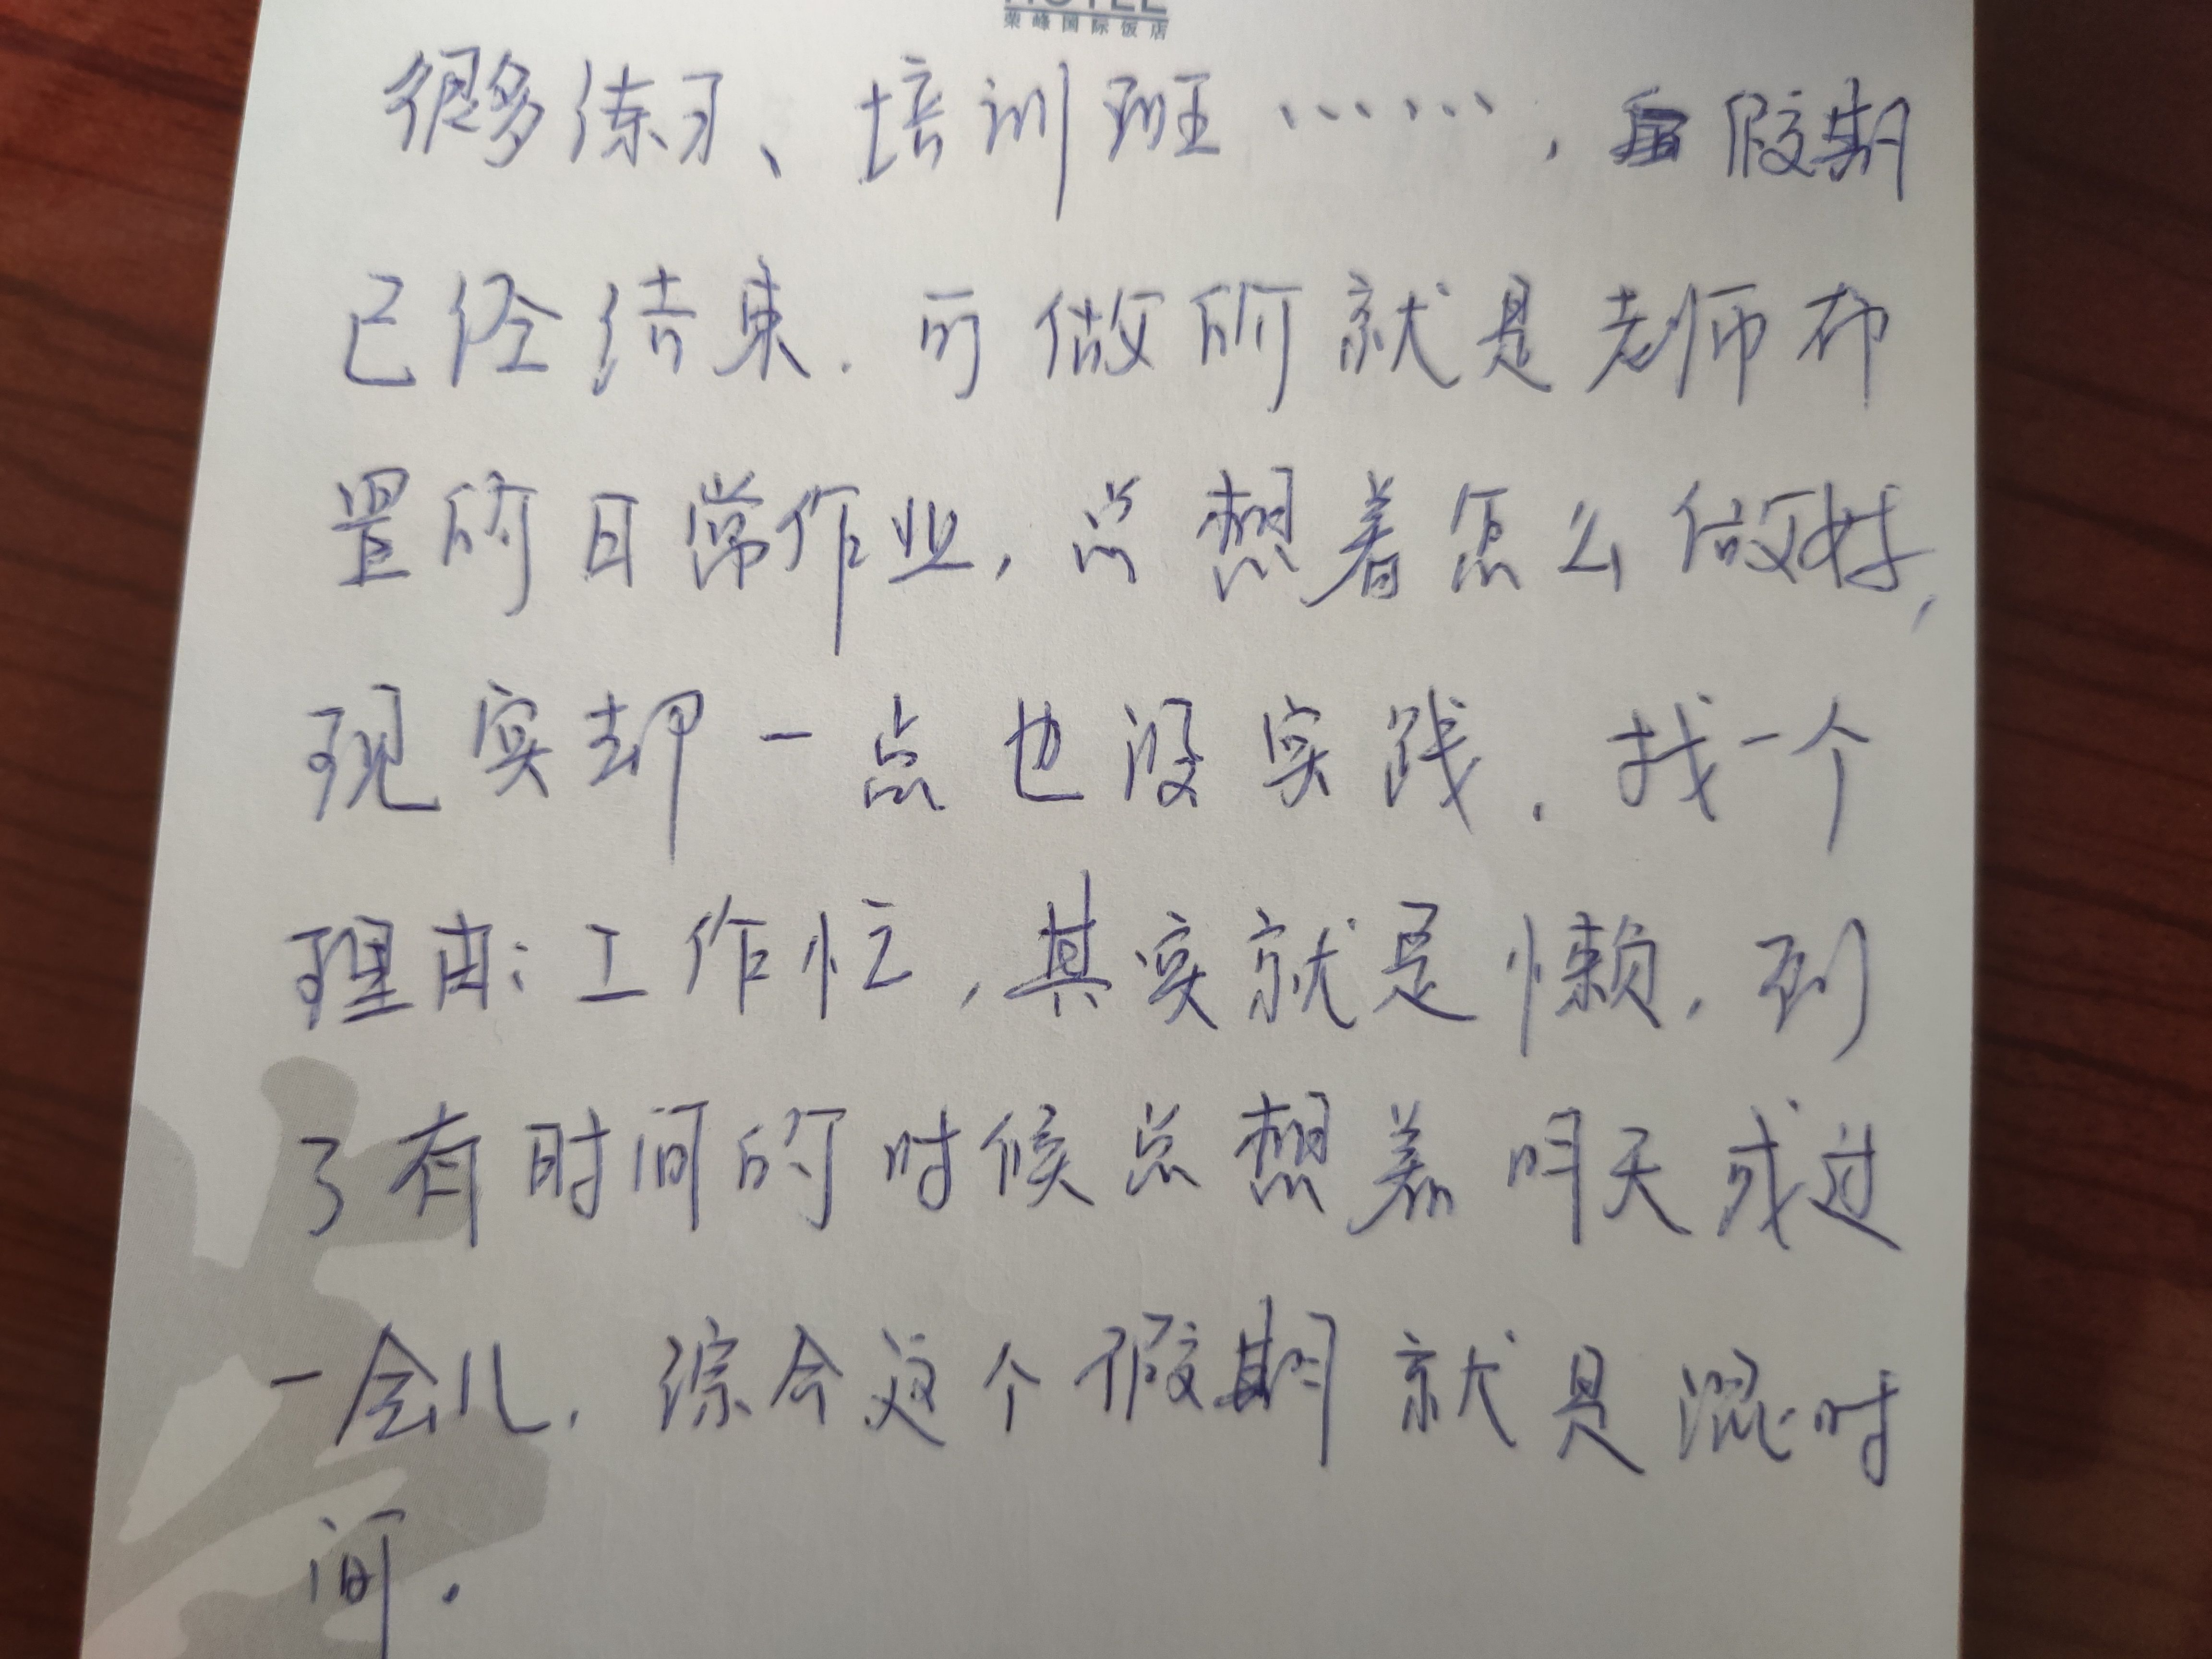 荣峰国际饭店
很多练习、培训班……，假期
已经结束.可做的就是老师布
置的日常作业，总想着怎么做好，
现实却一点也没实践.找一个
理由:工作忙,其实就是懒.到
了有时间的时候总想着明天或过
一会儿.综合这个假期就是混时
间.